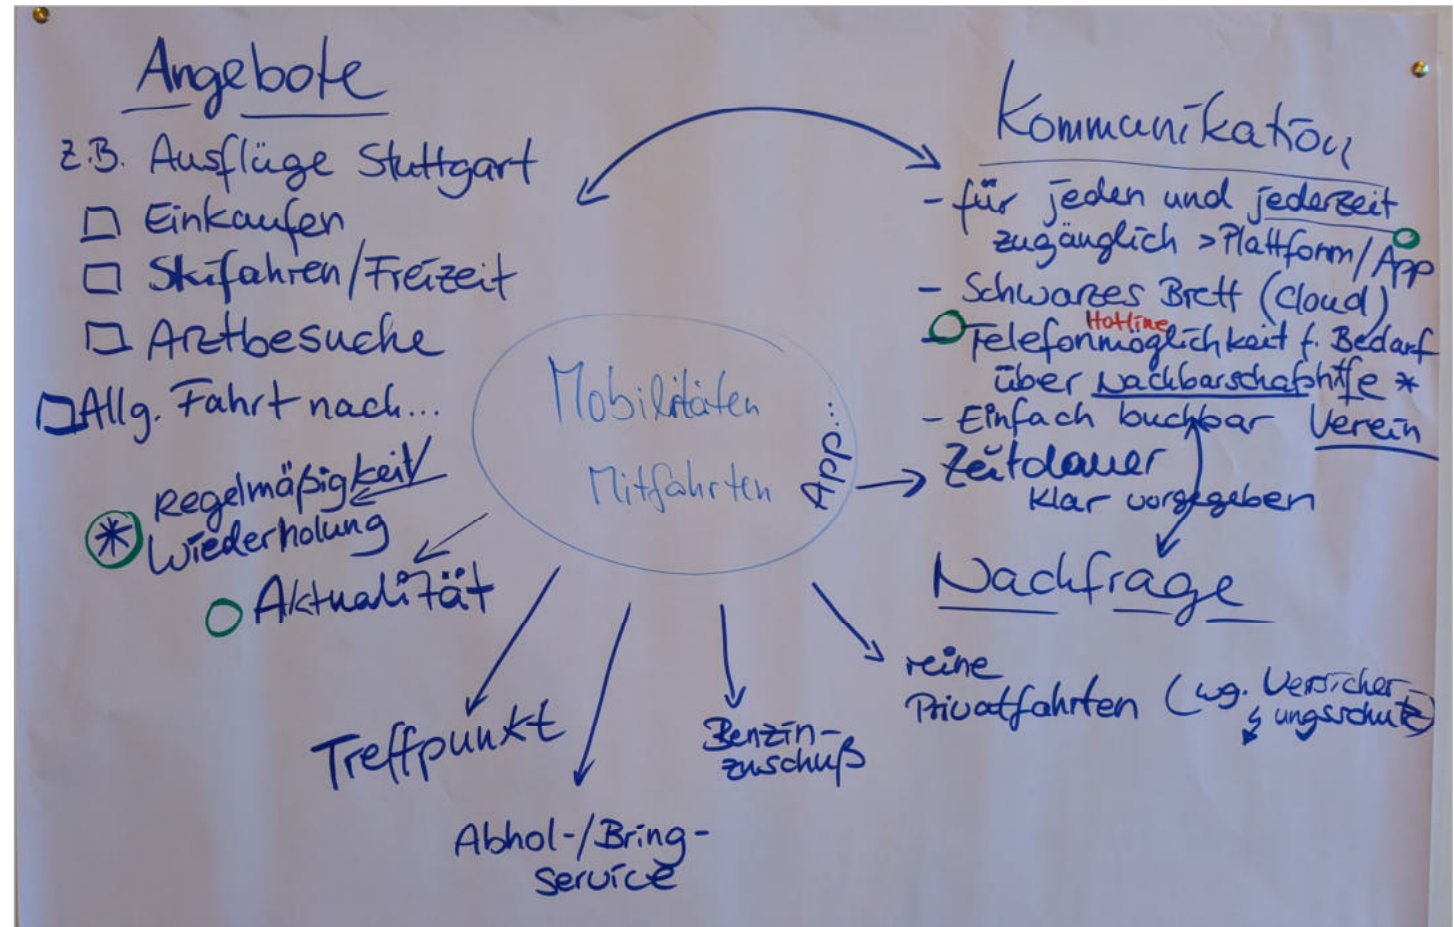 Angebote
z.B. Ausflüge Stuttgart
Einkaufen
Skifahren/Freizeit
Arztbesuche
Allg. Fahrt nach...
Regelmäßigkeit
* Wiederholung
Aktualität
Mobilitäten
Mitfahrten
App...
Kommunikation
- für jeden und jederzeit
zugänglich > Plattform/App
- Schwarzes Brett (Cloud)
Hotline
- Telefonmöglichkeit f. Bedarf
über Nachbarschaftshilfe *
- Einfach buchbar Verein
Zeitdauer
klar vorgegeben
Nachfrage
reine
Privatfahrten (wg. Versicher-
ungsschutz)
Benzin-
zuschuß
Treffpunkt
Abhol-/Bring-
service